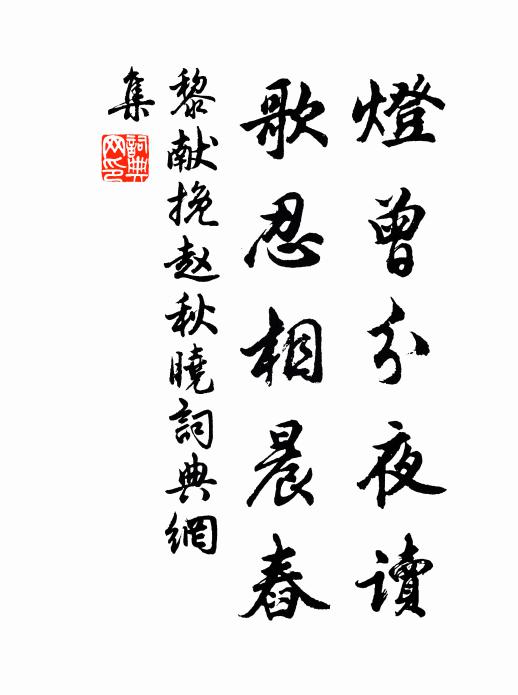 燈曾分夜讀
歌忍相晨舂
黎献挽赵秋曉詞典網
集
詞典
网印